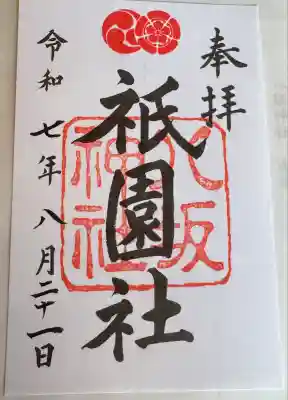 奉拝
祇園社
八坂
神社
令和七年八月二十一日